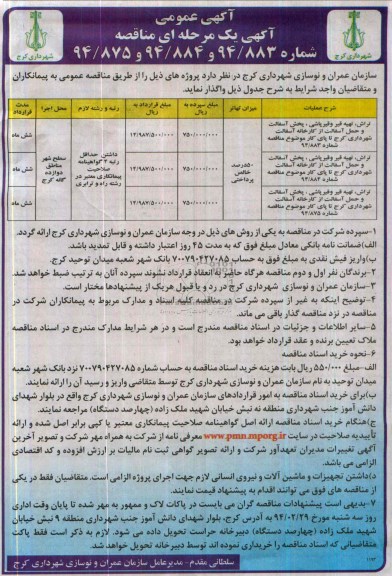 آگهی عمومی
آگهی یک مرحله ای مناقصه
شماره ۹۴/۸۸۳ و ۹۴/۸۸۴ و ۹۴/۸۷۵
شهرداری کرج
سازمان عمران و نوسازی شهرداری کرج در نظر دارد پروژه های ذیل را از طریق مناقصه عمومی به پیمانکاران
و متقاضیان واجد شرایط به شرح جدول ذیل واگذار نماید.
شرح عملیات
میزان کهنافر
مبلغ سپرده به ریال
مبلغ قرارداد به ریال
رتبه و رشته لازم
محل اجرا
مدت قرارداد
تراش، تهیه قیر و قیرپاشی ، پخش آسفالت
و حمل آسفالت از کارخانه آسفالت
شهرداری کرج تا پای کار موضوع مناقصه
شماره ۹۴/۸۸۳
۷۵۰/۰۰۰/۰۰۰
۱۴/۹۸۷/۵۰۰/۰۰۰
شش ماه
تراش، تهیه قیر و قیرپاشی ، پخش آسفالت
و حمل آسفالت از کارخانه آسفالت
شهرداری کرج تا پای کار موضوع مناقصه
شماره ۹۴/۸۸۴
۷۵۰/۰۰۰/۰۰۰
۱۴/۹۸۷/۵۰۰/۰۰۰
شش ماه
تراش، تهیه قیر و قیرپاشی ، پخش آسفالت
و حمل آسفالت از کارخانه آسفالت
شهرداری کرج تا پای کار موضوع مناقصه
شماره ۹۴/۸۷۵
۷۵۰/۰۰۰/۰۰۰
۱۴/۹۸۷/۵۰۰/۰۰۰
شش ماه
۵۰ درصد
خالص
پرداختی
داشتن حداقل
رتبه ۴ گواهینامه
صلاحیت
پیمانکاری معتبر در
رشته راه و ترابری
سطح شهر
مناطق
دوازده
گانه کرج
۱-سپرده شرکت در مناقصه به یکی از روش های ذیل در وجه سازمان عمران و نوسازی شهرداری کرج ارائه گردد.
الف)ضمانت نامه بانکی معادل مبلغ فوق که به مدت ۴۵ روز اعتبار داشته و قابل تمدید باشد.
ب)واریز فیش نقدی به مبلغ فوق به حساب ۷۰۰۷۹۰۴۲۷۰۸۵ بانک شهر شعبه میدان توحید کرج.
۲-برندگان نفر اول و دوم مناقصه هرگاه حاضر به انعقاد قرارداد نشوند سپرده آنان به ترتیب ضبط خواهد شد.
۳-سازمان عمران و نوسازی شهرداری کرج در رد و یا قبول هریک از پیشنهادها مختار است.
۴-توضیح اینکه به غیر از سپرده شرکت در مناقصه کلیه اسناد و مدارک مربوط به پیمانکاران شرکت در
مناقصه در نزد مناقصه گذار باقی می ماند.
۵-سایر اطلاعات و جزئیات در اسناد مناقصه مندرج است و در هر شرایط مدارک مندرج در اسناد مناقصه
ملاک تعیین برنده و عقد قرارداد خواهد بود.
۶-نحوه خرید اسناد مناقصه
الف-مبلغ ۵۵۰/۰۰۰ ریال بابت هزینه خرید اسناد مناقصه به حساب شماره ۷۰۰۷۹۰۴۲۷۰۸۵ نزد بانک شهر شعبه
میدان توحید به نام سازمان عمران و نوسازی شهرداری کرج توسط متقاضی واریز و رسید آن را ارائه نمایند.
ب)برای خرید اسناد مناقصه به امور قراردادهای سازمان عمران و نوسازی شهرداری کرج واقع در بلوار شهدای
دانش آموز جنب شهرداری منطقه نه نبش خیابان شهید ملک زاده (چهارصد دستگاه) مراجعه نمایند.
ج)هنگام خرید اسناد مناقصه ارائه اصل گواهینامه صلاحیت پیمانکاری معتبر یا کپی برابر اصل شده و ارائه
تأییدیه صلاحیت در سایت www.pmn.mporg.ir معرفی نامه از شرکت به همراه مهر شرکت و تصویر آخرین
آگهی تغییرات مدیران تعهدآور شرکت و ارائه تصویر گواهی ثبت نام مالیات بر ارزش افزوده و کد اقتصادی
الزامی می باشد.
د)داشتن تجهیزات و ماشین آلات و نیروی انسانی لازم جهت اجرای پروژه الزامی است. متقاضیان فقط در یکی
از مناقصه های فوق می توانند اقدام به پیشنهاد قیمت نمایند.
۷-بدیهی است پیشنهادات مناقصه گران می بایست در پاکات لاک و ممهور به مهر شده تا پایان وقت اداری
روز سه شنبه مورخ ۹۴/۰۲/۲۹ به آدرس کرج، بلوار شهدای دانش آموز جنب شهرداری منطقه ۹ نبش خیابان
شهید ملک زاده (چهارصد دستگاه) دبیرخانه حراست تحویل داده می شود. لازم به ذکر است فقط پاکت
متقاضیانی که اسناد مناقصه را خریداری نموده اند توسط دبیرخانه تحویل خواهد شد.
سلطانی مقدم- مدیرعامل سازمان عمران و نوسازی شهرداری کرج